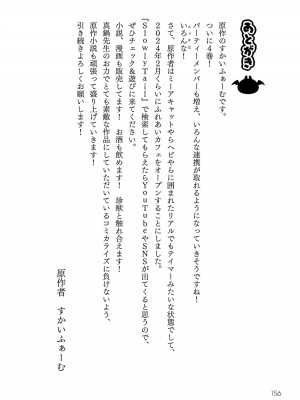 あとがき
原作のすかいふぁーむです。
ついに4巻!
パーティーメンバーも増え、いろんな連携が取れるようになっていきそうですね!
いろんな!
さて、原作者はミーアキャットやらヘビやらに囲まれたリアルでもテイマーみたいな状態でして、
2024年2月くらいにふれあいカフェをオープンすることにしました。
『SlowlyTail』で検索してもらえたらYouTubeやSNSが出てくると思うので、
ぜひチェック&遊びに来てください!
小説、漫画も販売してます! お酒も飲めます! 珍獣と触れ合えます!
真鍋先生のお力でとても素敵な作品にしていただいているコミカライズに負けないよう、
原作小説も頑張って盛り上げていきます!
引き続きよろしくお願いします!
原作者 すかいふぁーむ
156